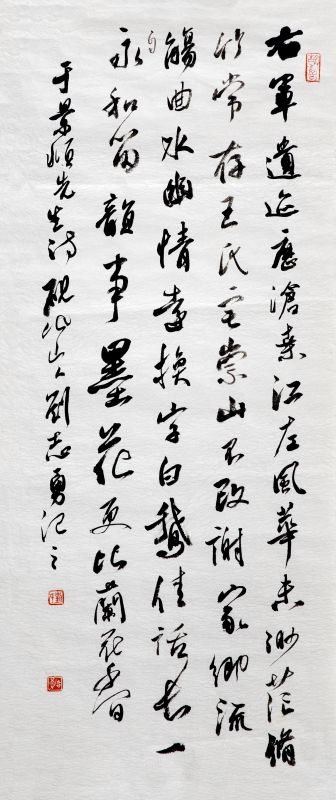 右軍遺迹歷滄桑江左風華未渺茫脩
竹常存王氏宅崇山不改謝家卿流
觴曲水幽情換字白鵝佳話長一
自
永和留韻事墨花更比蘭花香
于景頫先生詩硯山人劉志勇記之